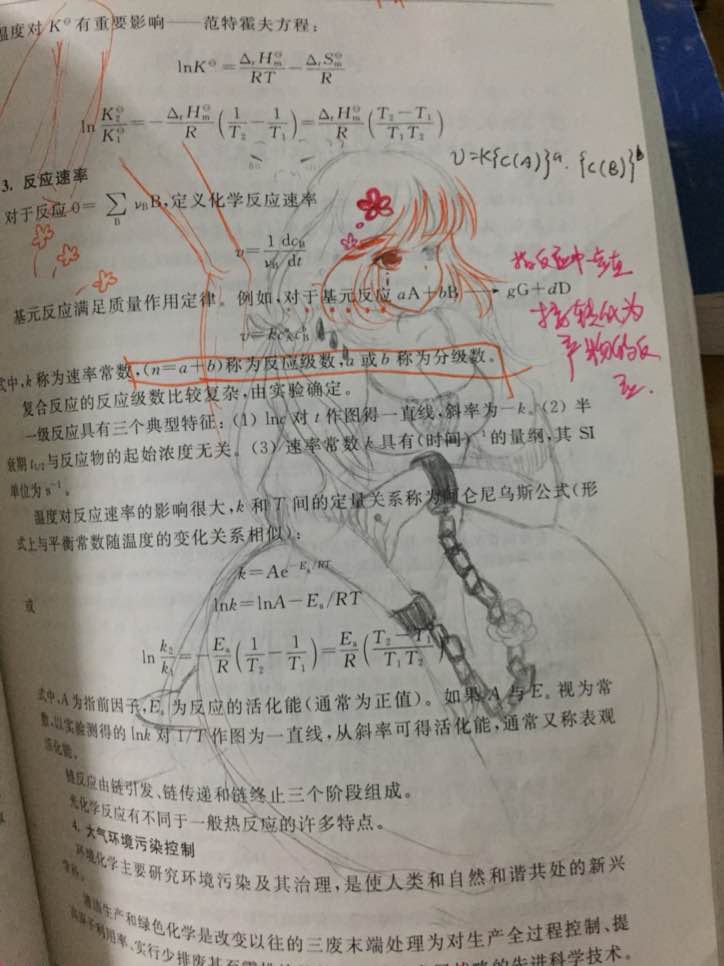 温度对 K⊖ 有重要影响——范特霍夫方程：
lnK⊖ = ΔᵣHₘ⊖/RT − ΔᵣSₘ⊖/R
ln K₂⊖/K₁⊖ = −ΔᵣHₘ⊖/R (1/T₂ − 1/T₁) = ΔᵣHₘ⊖/R ((T₂−T₁)/T₁T₂)
υ=K{C(A)}ᵃ·{C(B)}ᵇ
3. 反应速率
对于反应 0= ∑_B ν_B B,定义化学反应速率
υ = 1/ν_B dc_B/dt
基元反应满足质量作用定律。例如,对于基元反应 aA+bB ⟶ gG+dD
指反应中一步直
υ=kc_A^a c_B^b
接转化为
式中,k 称为速率常数,(n=a+b)称为反应级数,a 或 b 称为分级数。
产物的反
应.
复合反应的反应级数比较复杂,由实验确定。
一级反应具有三个典型特征：(1) lnc 对 t 作图得一直线,斜率为−k。(2) 半
衰期 t₁/₂与反应物的起始浓度无关。(3) 速率常数 k 具有(时间)⁻¹的量纲,其 SI
单位为 s⁻¹。
温度对反应速率的影响很大,k 和 T 间的定量关系称为阿仑尼乌斯公式(形
式上与平衡常数随温度的变化关系相似)：
k=Ae^(−Eₐ/RT)
或
lnk=lnA−Eₐ/RT
ln k₂/k₁ = −Eₐ/R (1/T₂ − 1/T₁) = Eₐ/R ((T₂−T₁)/T₁T₂)
式中,A 为指前因子,Eₐ 为反应的活化能(通常为正值)。如果 A 与 Eₐ 视为常
数,以实验测得的 lnk 对 1/T 作图为一直线,从斜率可得活化能,通常又称表观
活化能。
链反应由链引发、链传递和链终止三个阶段组成。
光化学反应有不同于一般热反应的许多特点。
4. 大气环境污染控制
环境化学主要研究环境污染及其治理,是使人类和自然和谐共处的新兴
学科。
清洁生产和绿色化学是改变以往的三废末端处理为对生产全过程控制、提
高原子利用率,实行少排废甚至零排
的先进科学技术。